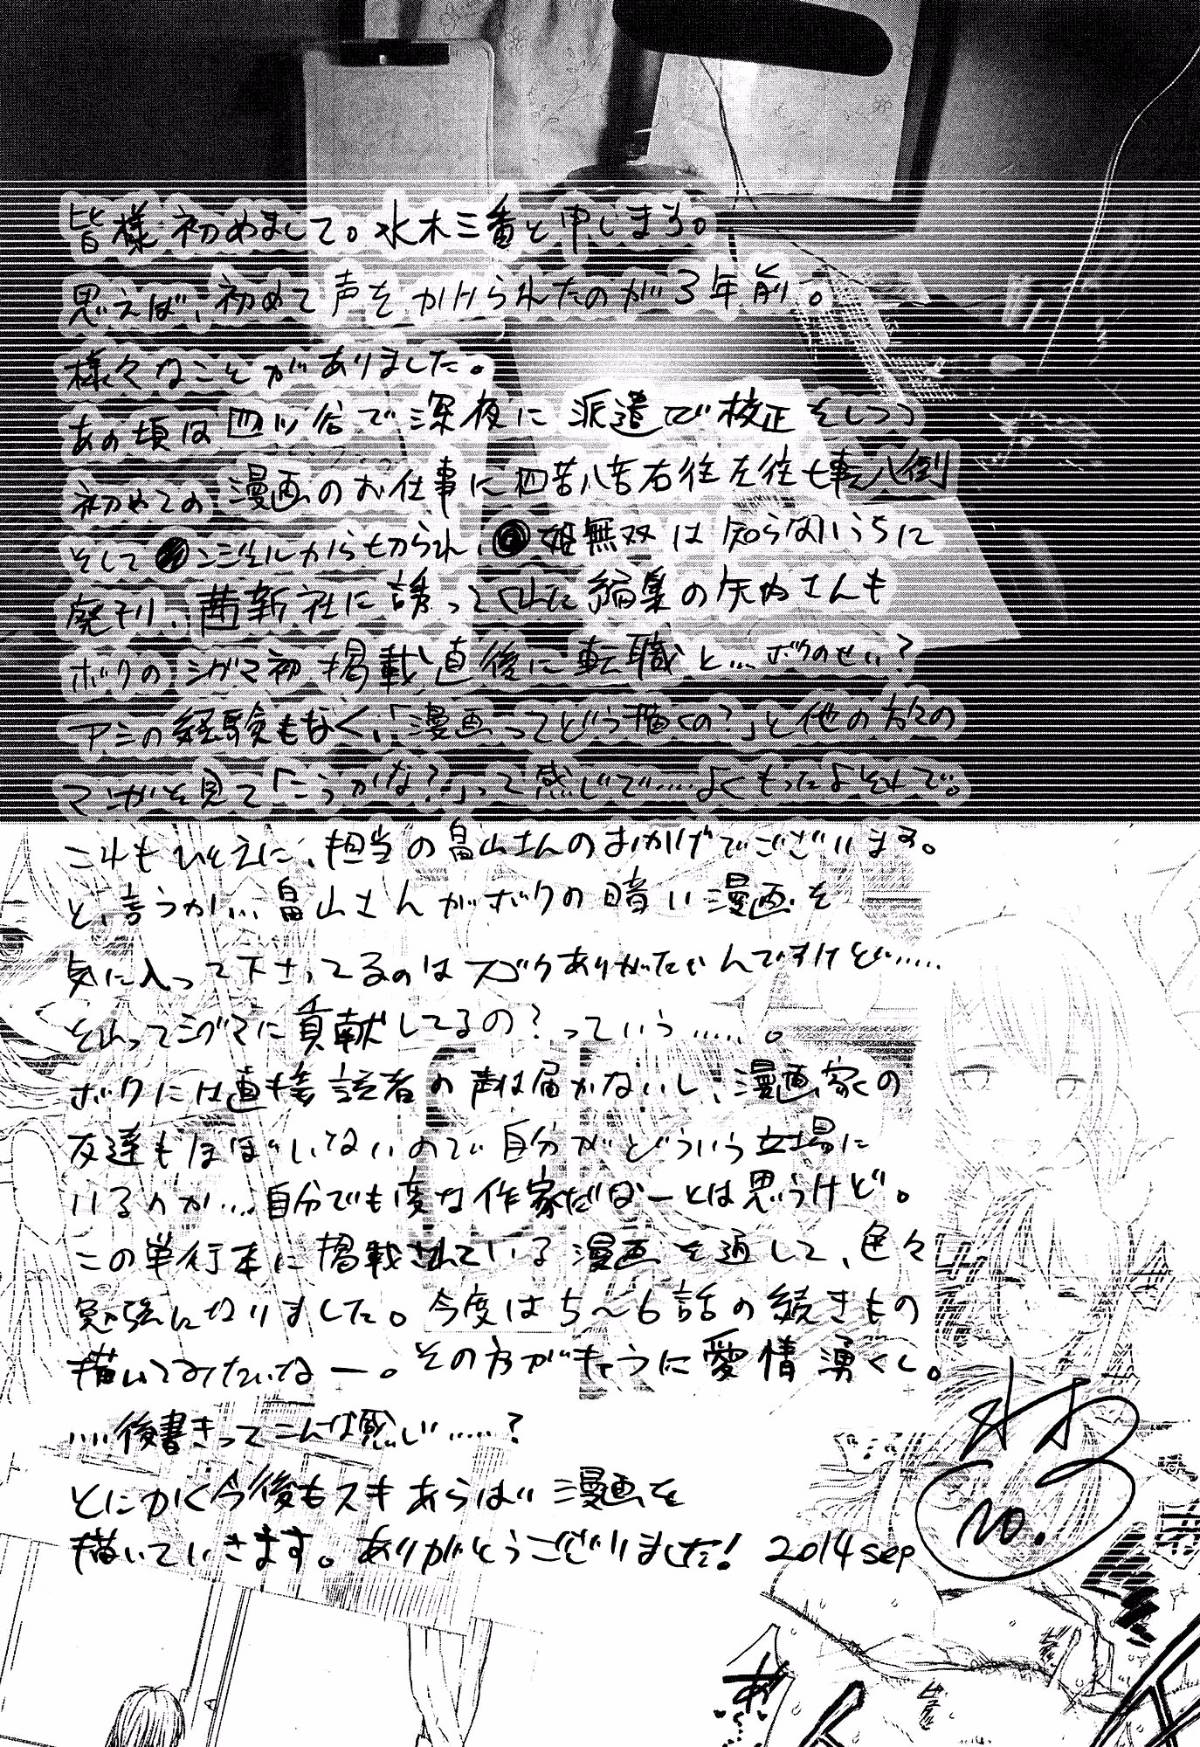 皆様初めまして。水木三番と申します。
思えば、初めて声をかけられたのが3年前。
様々なことがありました。
あの頃は四ツ谷で深夜に派遣で校正をしつつ
初めての漫画のお仕事に四苦八苦右往左往七転八倒
そして ンジェルから切られ、 姫無双は知らないうちに
廃刊、茜新社に誘ってくれた編集の さんも
ボクのシグマ初掲載直後に転職と…ボクのせい?
アシの経験もなく、「漫画ってどう描くの?」と他の方々の
マンガを見て「こうかな?」って感じで……よくもったよそれで。
これもひとえに、担当の畠山さんのおかげでございます。
と、言うか…畠山さんがボクの暗い漫画を
気に入って下さってるのはスゴクありがたいんですけど……
それってシグマに貢献してるの?っていう……。
ボクには直接読者の声は届かないし、漫画家の
友達もほぼいないので自分がどういう立場に
いるのか…自分でも変な作家だなーとは思うけど。
この単行本に掲載されている漫画を通して、色々
勉強になりました。今度は5〜6話の続きもの
描いてみたいなー。その方がキャラに愛情湧くし。
……後書きってこんな感じ……?
とにかく今後もスキあらば漫画を
描いていきます。ありがとうございました! 2014 sep